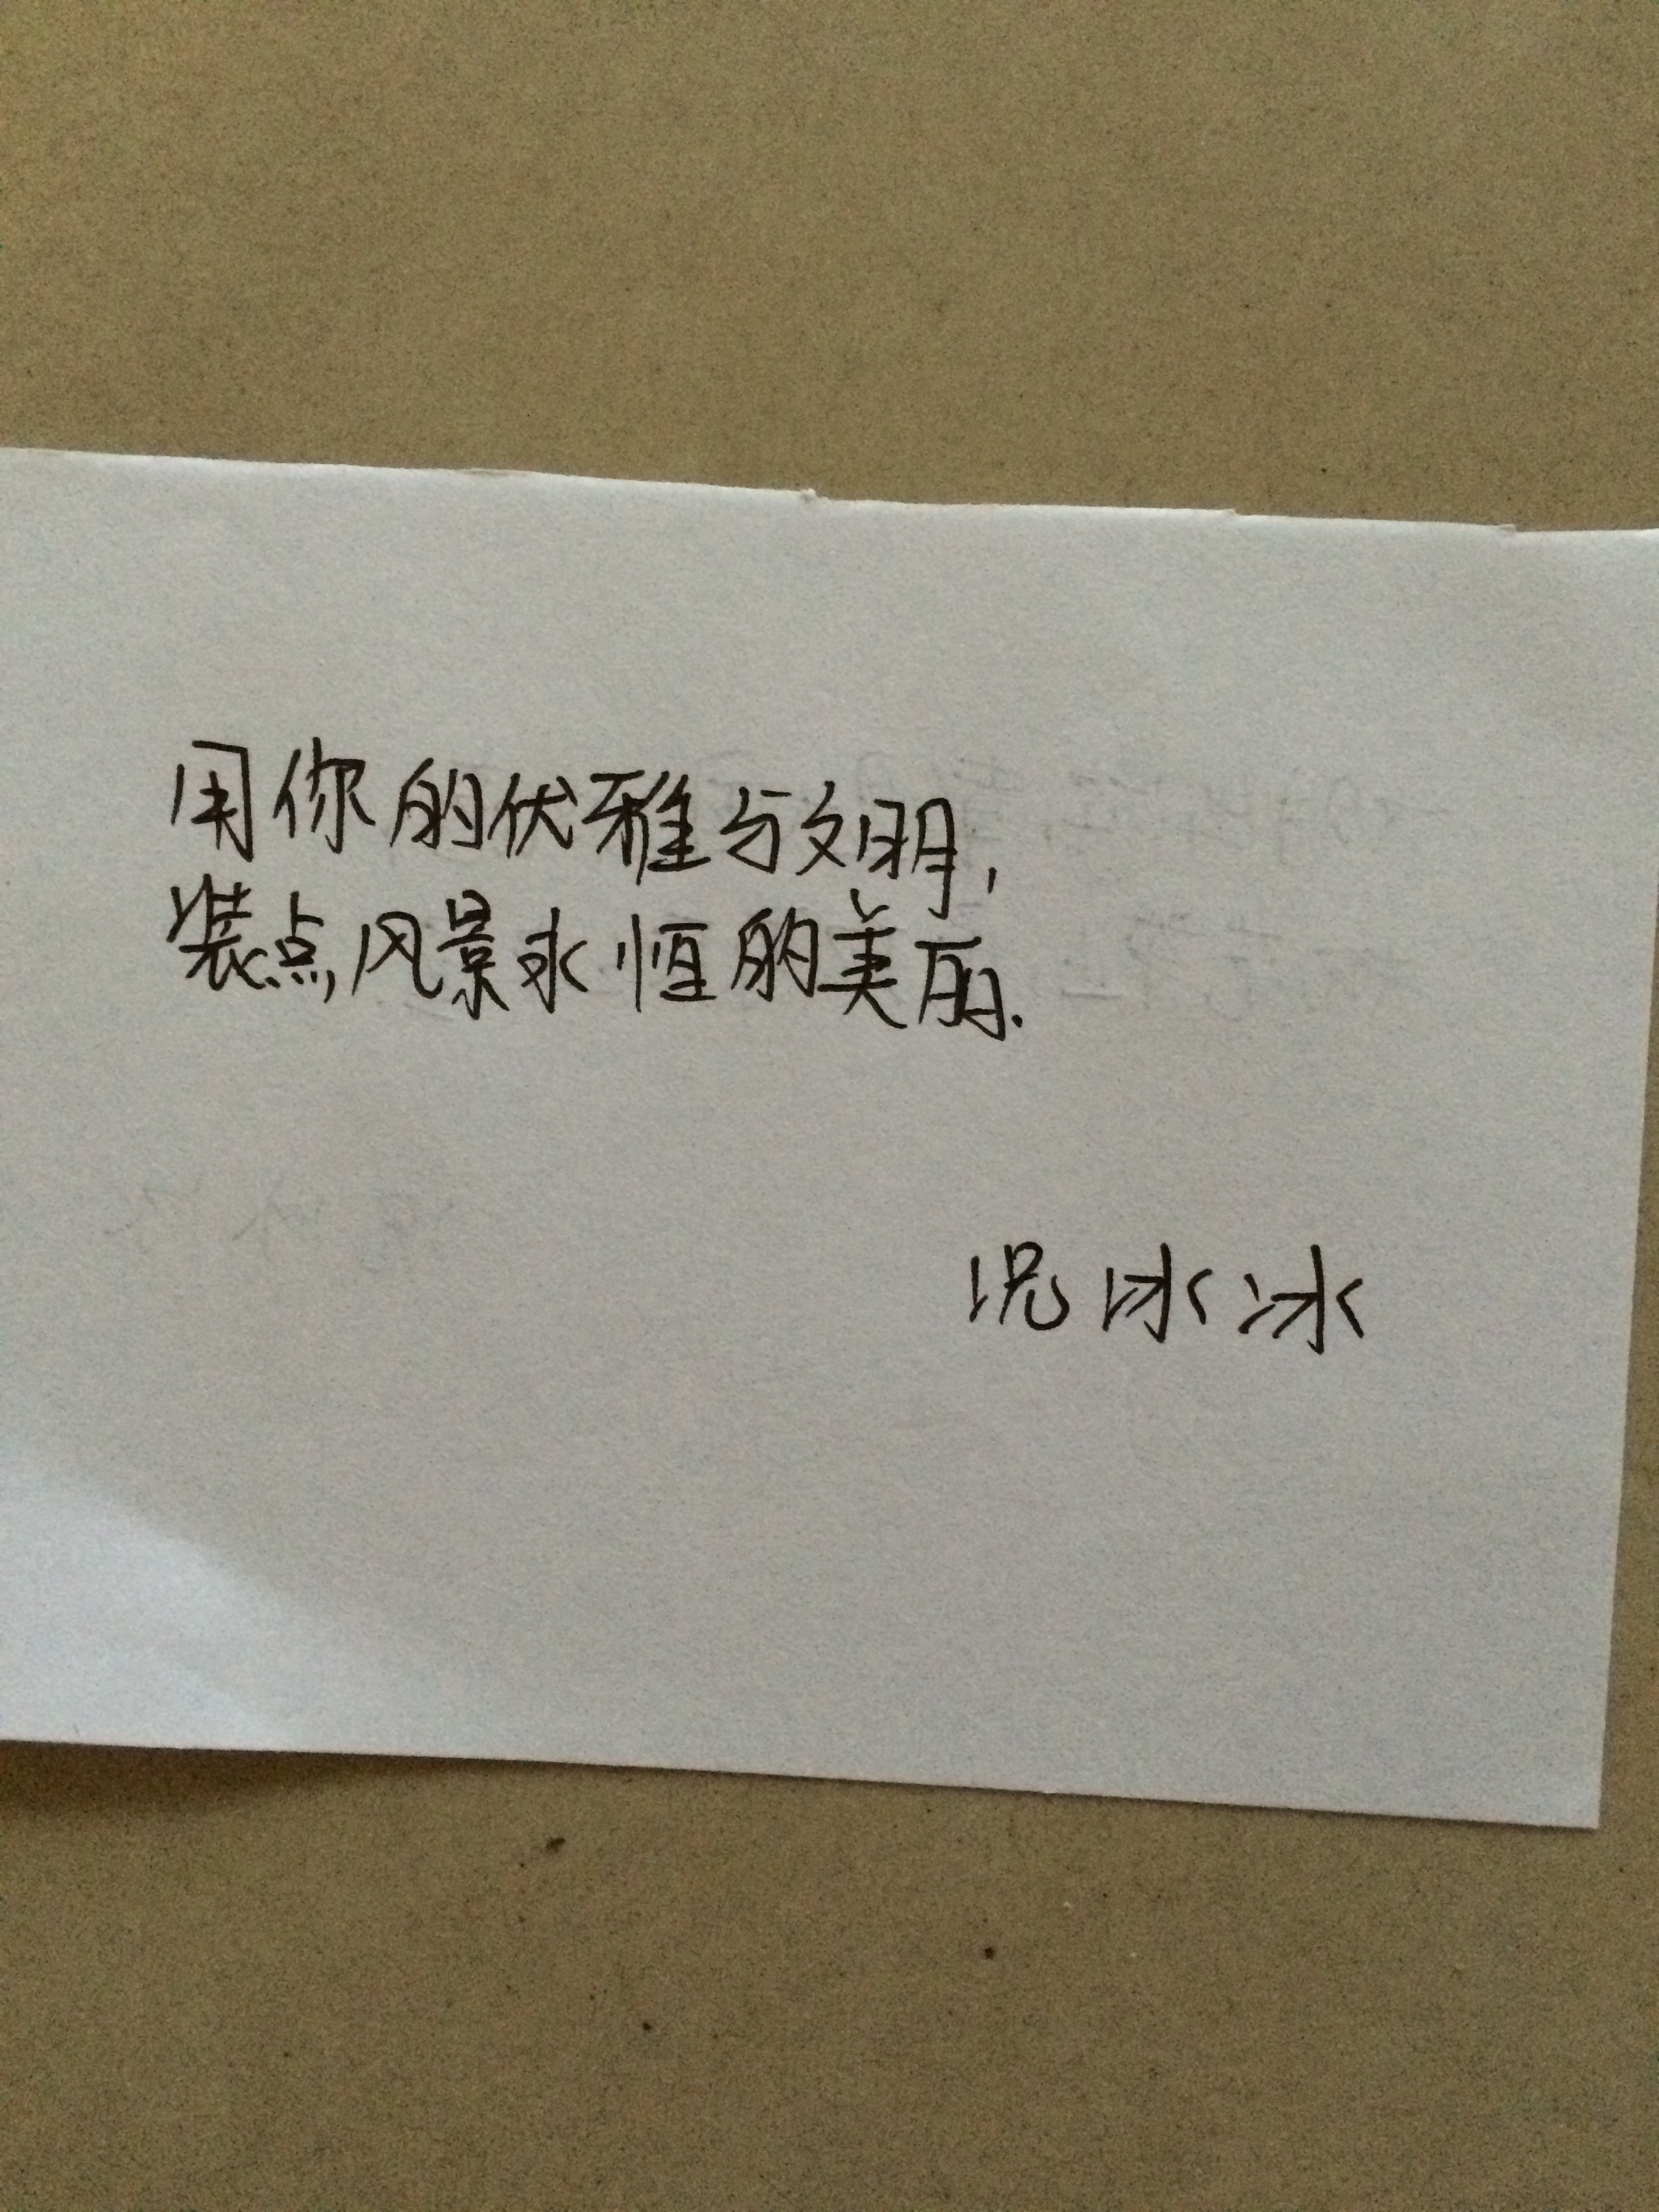 用你的优雅与文明,
装点风景永恒的美丽.
况冰冰